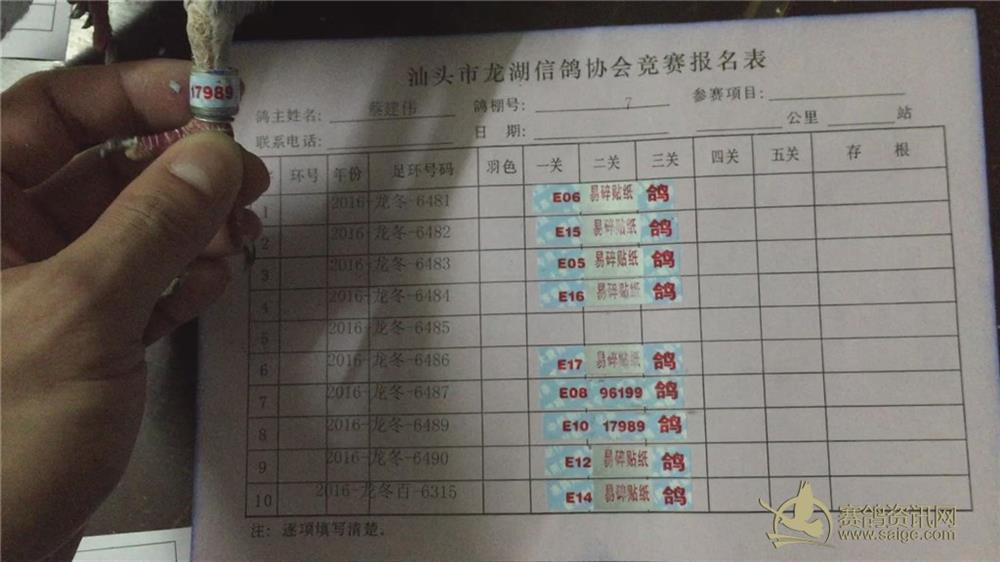 汕头市龙湖信鸽协会竞赛报名表
17989
鸽主姓名: 蔡建伟 鸽棚号: 7 参赛项目:
联系电话: 日 期: 公里 站
环号 年份 足环号码 羽色 一关 二关 三关 四关 五关 存 根
1 2016-龙冬-6481 E06 易碎贴纸 鸽
2 2016-龙冬-6482 E15 易碎贴纸 鸽
3 2016-龙冬-6483 E05 易碎贴纸 鸽
4 2016-龙冬-6484 E16 易碎贴纸 鸽
5 2016-龙冬-6485
6 2016-龙冬-6486 E17 易碎贴纸 鸽
7 2016-龙冬-6487 E08 96199 鸽
8 2016-龙冬-6489 E10 17989 鸽
9 2016-龙冬-6490 E12 易碎贴纸 鸽
10 2016-龙冬百-6315 E14 易碎贴纸 鸽
注: 逐项填写清楚。
赛鸽资讯网
www.saige.com